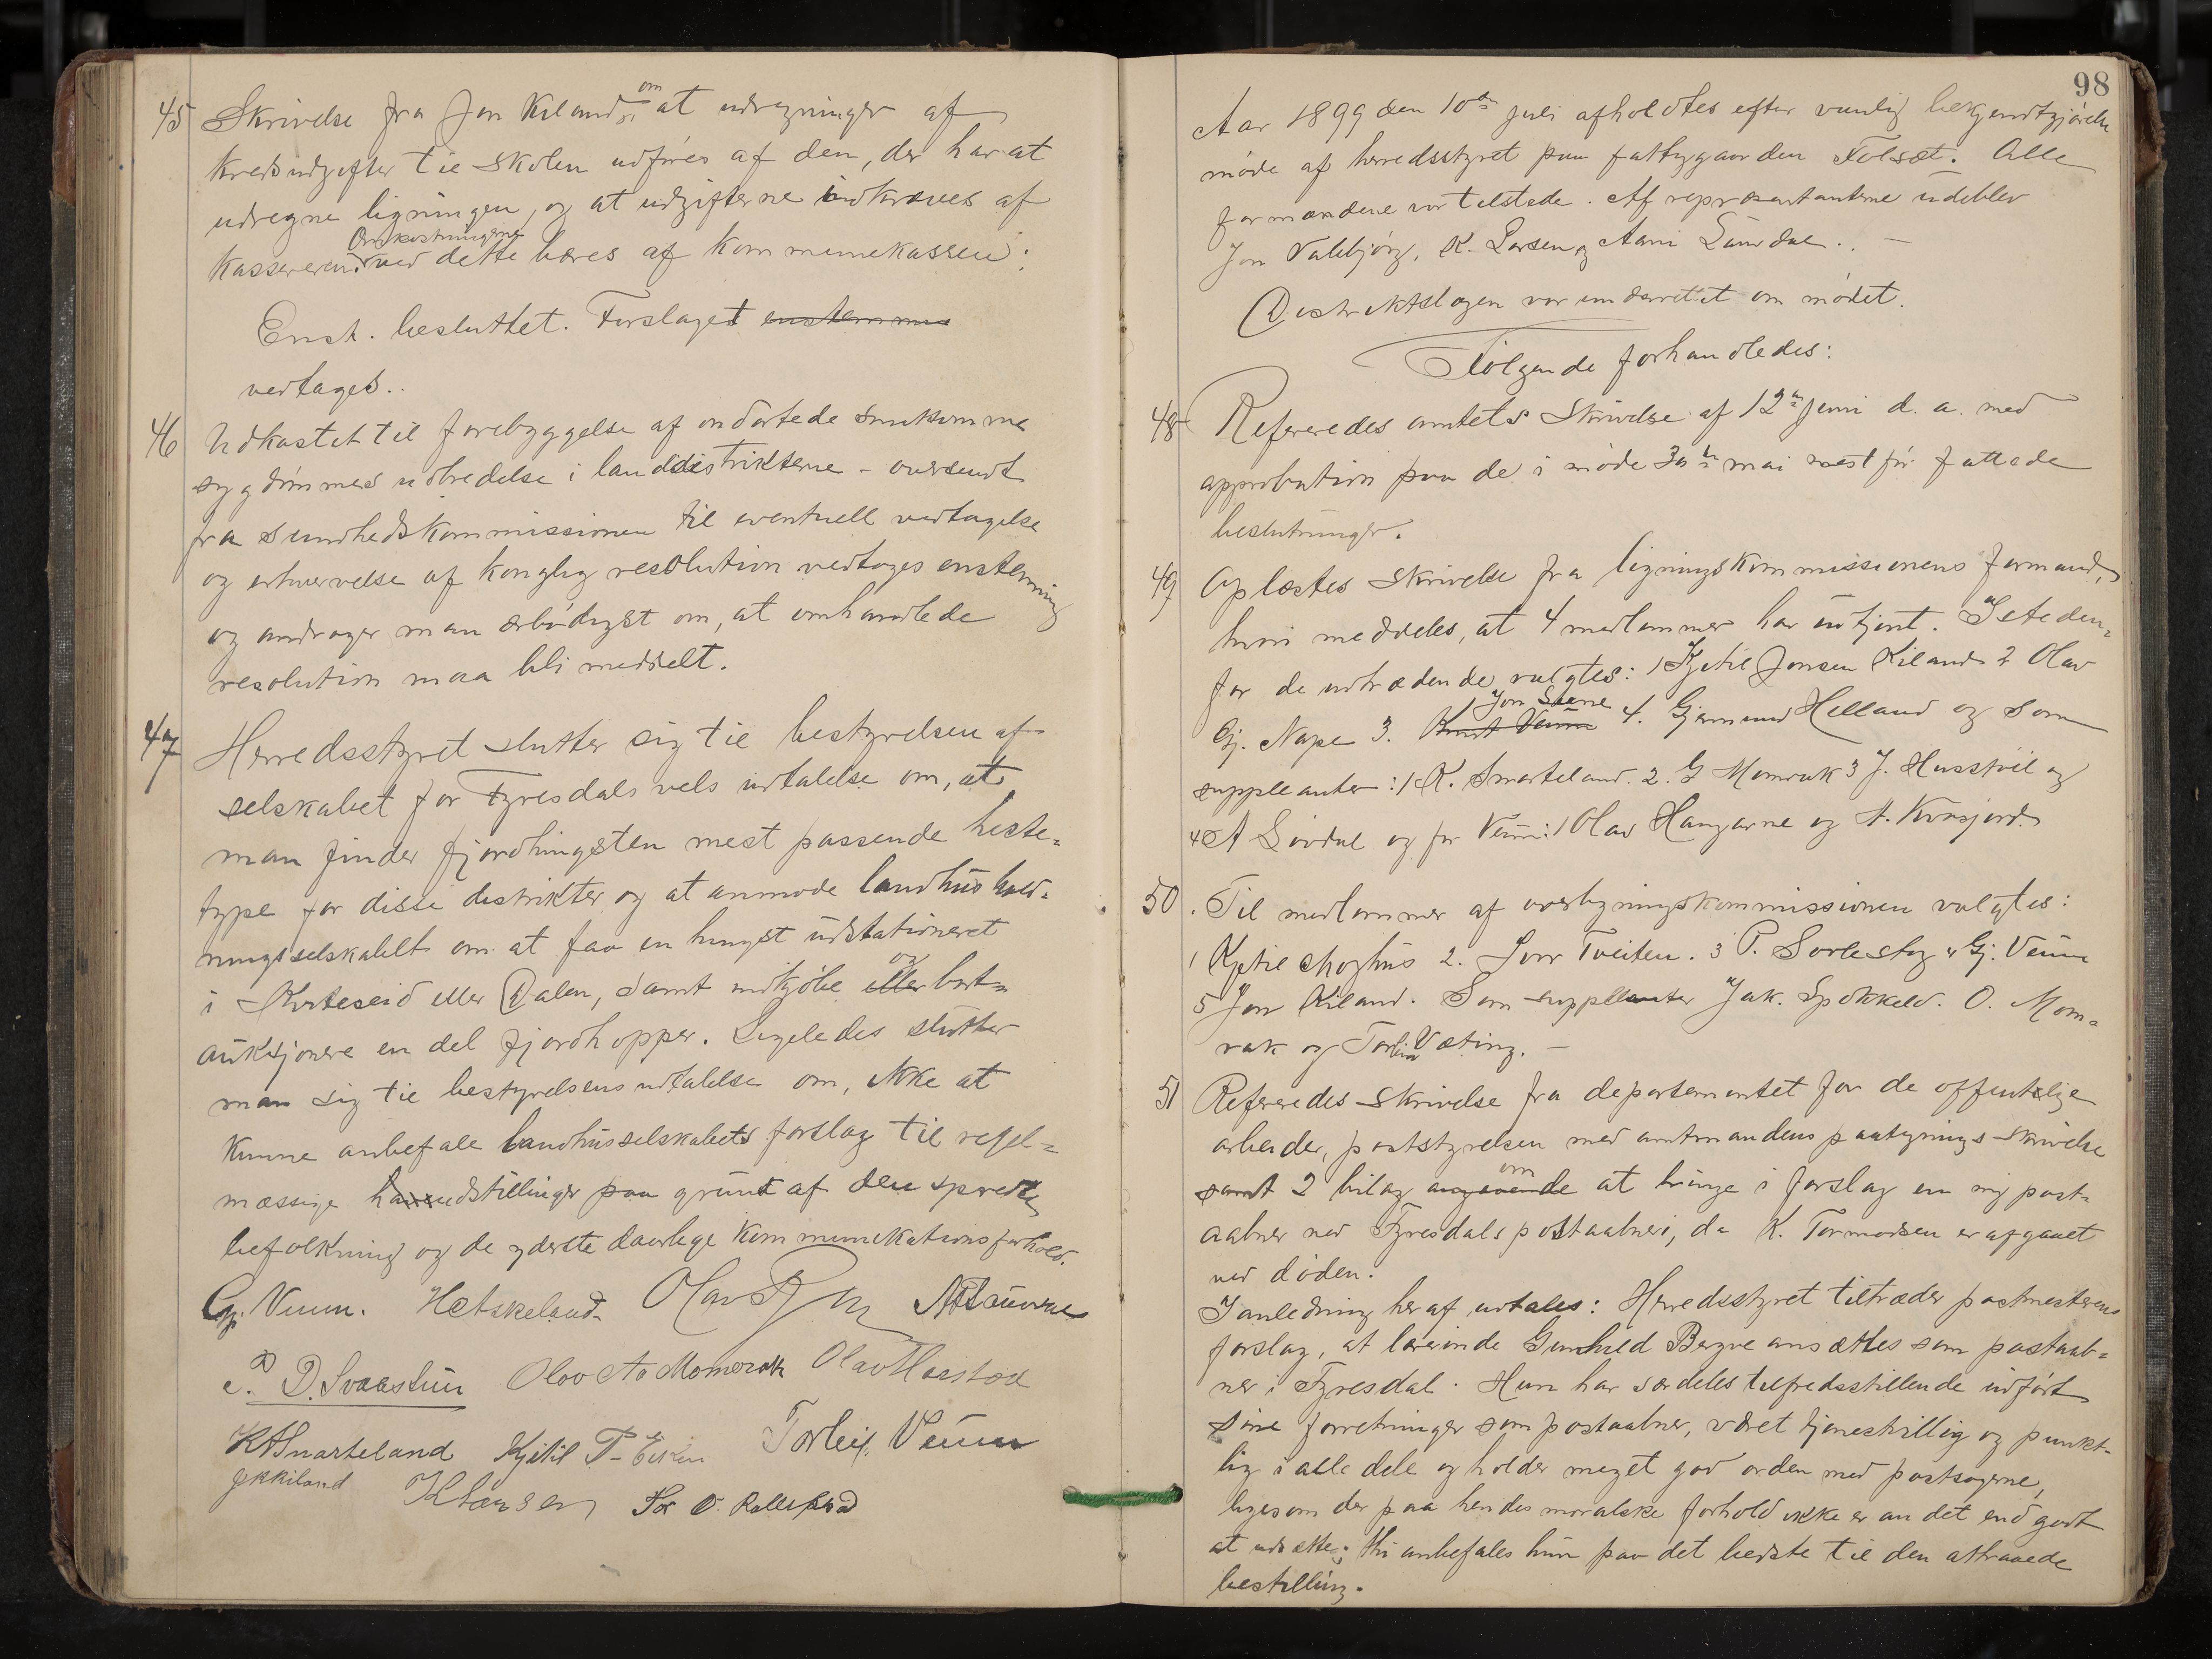 45 Skrivelse fra Jon Kiland, om at udregninger af
kredsudgifter til skolen udføres af den, der har at
udregne ligningen, og at udgifterne indkræves af
kassereren. Omkostningerne ved dette bæres af kommunekassen:
Enst. besluttet. Forslaget enstemmi
vedtages..
46 Udkastet til forebyggelse af ondartede smitsomme
sygdommes udbredelse i landdistrikterne - oversendt
fra sundhedskommissionen til eventuell vedtagelse
og erhvervelse af konglig resolution vedtoges enstemmig
og andrager man ærbødigst om, at omhandlede
resolution maa bli meddelt.
47 Herredsstyret slutter sig til bestyrelsen af
selskabet for Tyresdals vels udtalelse om, at
man finder fjordhingsten mest passende heste-
type for disse distrikter og at anmode landhushold-
ningsselskabet om at faa en hingst udstationeret
i Kviteseid eller Dalen, samt indkjøbe eller og bort-
auksjonere en del fjordhopper. Ligeledes slutter
man sig til bestyrelsens udtalelse om, ikke at
kunne anbefale landhusselskabets forslag til regel-
mæssige udstillinger paa grund af den spredte
befolkning og de yderste daarlige kommunikationsforhold.
Gj. Veum. H Ltskeland
D. Svaastuu Olav As Momrak Olav Harstad
K A Snarteland Kjetil T. Eikin Torleif Veum
J K Kiland K Larsen Tor O. Rolleifstad
98
Aar 1899 den 10de juli afholdtes efter vanlig bekjendtgjørelse
møde af herredsstyret paa fattiggaarden Folsæt. Alle
formændene var tilstede. Af repræsentanterne udeblev
Jon Valebjørg, K. Larsen og Aani Lundal.. -
Distriktslægen var underrettet om mødet.
Følgende forhandledes:
48 Refereredes amtets skrivelse af 12te juni d. a. med
approbation paa de i møde 30te mai næst før fattede
beslutninger.
49 Oplæstes skrivelse fra ligningskommissionens formand,
hvori meddeles, at 4 medlemmer har udtjent. Isteden-
for de udtrædende valgtes: 1 Kjetil Jonsen Kiland 2 Olav
Gj. Nape 3. Knut Veum Jon Skene 4. Gjermund Helland og som
suppleanter: 1 K. Snarteland. 2. G Momrak 3 J. Husstøil og
4 A Lovdal og for Veum: 1 Olav Haugarne og A. Kvasjord.
50. Til medlemmer af overligningskommissionen valgtes:
1 Kjetil Moghus 2. Sveen Tveiten. 3 P. Sorlestog 4 Gj. Veum
5 Jon Kiland. Som suppleanter Jak. Spokkeld. O. Mom-
rak og Torleiv Væting. -
51 Refereredes skrivelse fra departementet for de offentlige
arbeider, poststyrelsen med amtmandens paategningsskrivelse
samt 2 bilag angaaende om at bringe i forslag en ny post-
aabner ved Fyresdals postaabneri, da K. Tormodsen er afgaaet
ved døden.
I anledning heraf udtales: Herredsstyret tiltræder postmesterens
forslag, at lærerinde Gunhild Berge ansættes som postaab-
ner i Fyresdal. Hun har særdeles tilfredsstillende udført
sine forretninger som postaabner, været tjenestvillig og punkt-
lig i alle dele og holder meget god orden med postsagerne,
ligesom der paa hendes moralske forhold ikke er andet end godt
at udsætte; thi anbefales hun paa det bedste til den attraaede
bestilling.